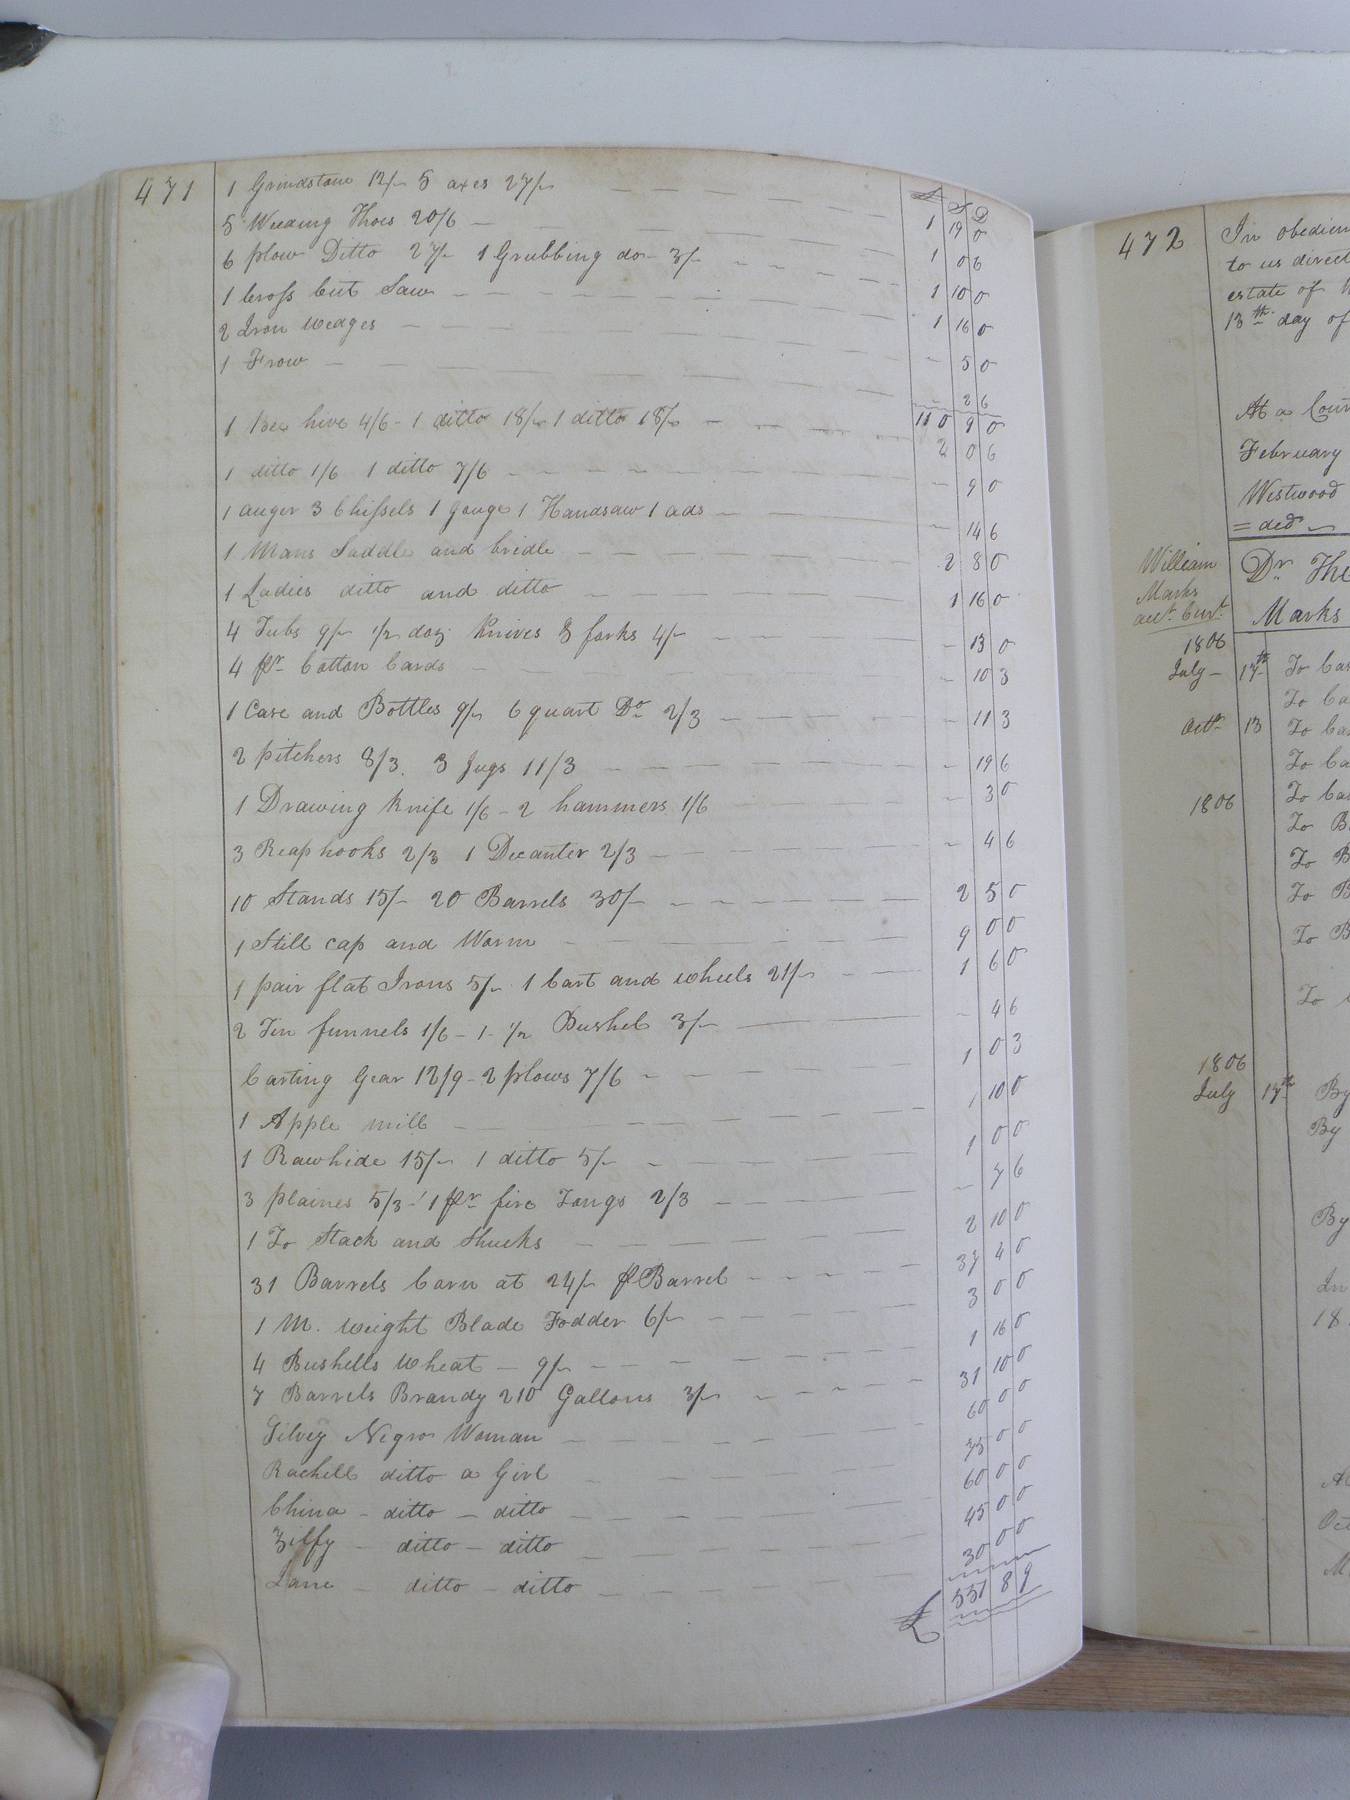 471
£ S D
1 Grindstone 12/- 5 axes 27/- 1 19 0
5 Weeding Hoes 20/6 1 0 6
6 plow Ditto 27/- 1 Grubbing do- 3/- 1 10 0
1 Cross Cut Saw 1 16 0
2 Iron Wedges - 5 0
1 Frow - 2 6
110 9 0
1 Bee hive 4/6 - 1 ditto 18/- 1 ditto 18/- 2 0 6
1 ditto 1/6 1 ditto 7/6 - 9 0
1 auger 3 Chissels 1 gouge 1 Handsaw 1 ads - 14 6
1 Mans Saddle and bridle 2 8 0
1 Ladies ditto and ditto 1 16 0
4 Tubs 9/- 1/2 doz knives & forks 4/- - 13 0
4 pr Cotton Cards - 10 3
1 Case and Bottles 9/- 6 quart Do 2/3 - 11 3
2 pitchers 8/3. 3 Jugs 11/3 - 19 6
1 Drawing knife 1/6 - 2 hammers 1/6 - 3 0
3 Reaphooks 2/3 1 Decanter 2/3 - 4 6
10 Stands 15/- 20 Barrels 30/- 2 5 0
1 Still cap and Worm 9 0 0
1 pair flat Irons 5/- 1 Cart and wheels 21/- 1 6 0
2 Tin funnels 1/6 - 1- 1/2 Bushel 3/- - 4 6
Carting Gear 12/9 - 2 plows 7/6 1 0 3
1 Apple mill 1 10 0
1 Rawhide 15/- 1 ditto 5/- 1 0 0
3 plaines 5/3 - 1 pr fire Tongs 2/3 - 7 6
1 To Stack and Shucks 2 10 0
31 Barrels Corn at 24/- pr Barrel 37 4 0
1 M. weight Blade Fodder 6/- 3 0 0
4 Bushells Wheat - 9/- 1 16 0
7 Barrels Brandy 210 Gallons 3/- 31 10 0
Silvey Negro Woman 60 0 0
Rachell ditto a Girl 75 0 0
China - ditto - ditto 60 0 0
Zilfy - ditto - ditto 45 0 0
Lane - ditto - ditto 30 0 0
£ 551 8 9
472
In obedien
to us direct
estate of
13th day of
At a Cour
February
Westwood
= ded
William
Marks
acct. Curt.
Dr The
Marks
1806
July - 17th To Ca
To Ca
Octr 13 To Ca
To Ca
1806 To Ca
To B
To B
To B
To B
To
1806
July 17th By
By
By
In
18
A
Oct
M